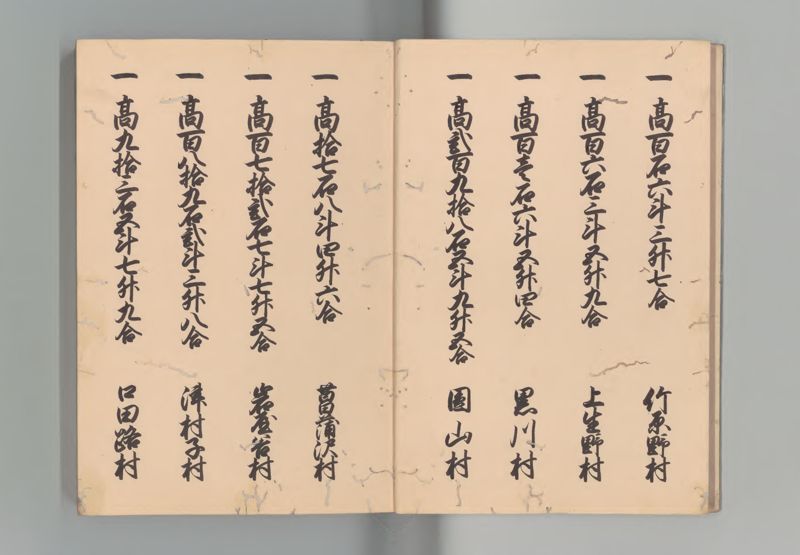 一 高百石六斗三升七合 竹原野村
一 高百六石三斗五升九合 上生野村
一 高百壱石六斗五升四合 黒川村
一 高弐百九拾八石五斗九升五合 圓山村
一 高拾七石八斗四升六合 菖蒲沢村
一 高百七拾弐石七斗七升五合 岩屋谷村
一 高百八拾九石弐斗三升八合 津村子村
一 高九拾三石五斗七升九合 口田路村